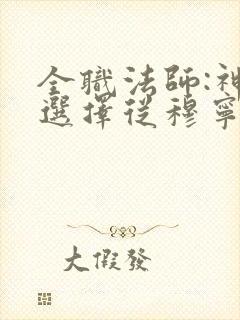 全職法師:神
選擇從穆寧
大假發